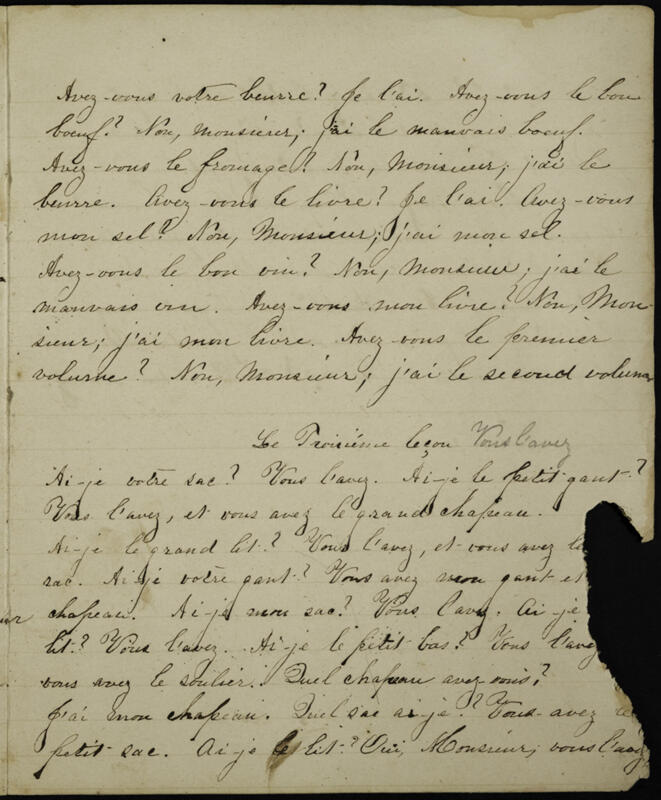 Avez-vous votre beurre? Je l'ai. Avez-vous le bon
boeuf? Non, monsieur; j'ai le mauvais boeuf.
Avez-vous le fromage? Non, Monsieur; j'ai le
beurre. Avez-vous le livre? Je l'ai. Avez-vous
mon sel? Non, Monsieur; j'ai mon sel.
Avez-vous le bon vin? Non, Monsieur; j'ai le
mauvais vin. Avez-vous mon livre? Non, Mon-
sieur; j'ai mon livre. Avez-vous le premier
volume? Non, Monsieur; j'ai le second volume
Le Troisiéme leçon Vous l'avez
Ai-je votre sac? Vous l'avez. Ai-je le petit gant?
Vous l'avez, et vous avez le grand chapeau.
Ai-je le grand lit? Vous l'avez, et vous avez
sac. Ai-je votre gant? Vous avez mon gant et
chapeau. Ai-je mon sac? Vous l'avez. Ai-je
lit? Vous l'avez. Ai-je le petit bas? Vous l'avez
vous avez le soulier. Quel chapeau avez-vous?
J'ai mon chapeau. Quel sac ai-je? Vous avez le
petit sac. Ai-je le lit? Oui, Monsieur, vous l'avez